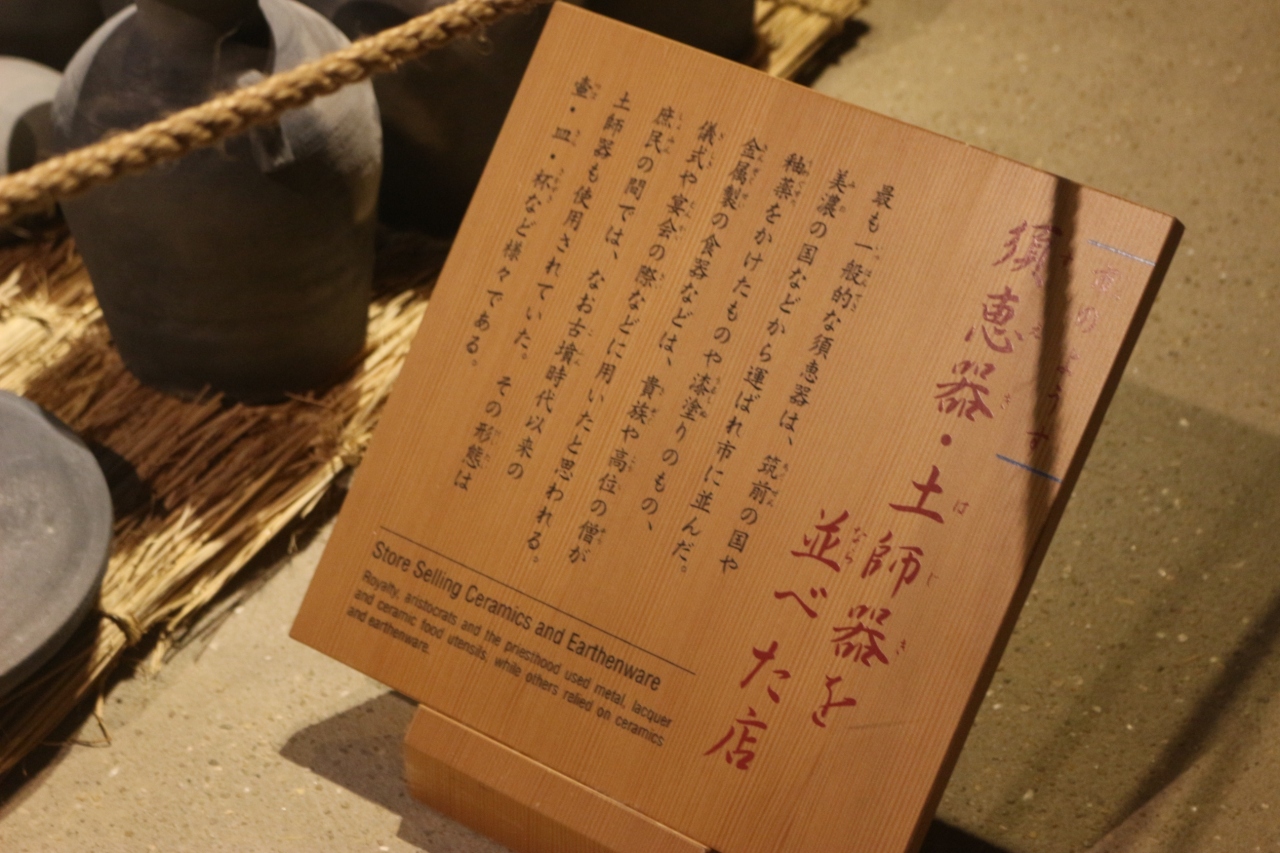 市のようす
須恵器・土師器を
並べた店
最も一般的な須恵器は、筑前の国や
美濃の国などから運ばれ市に並んだ。
釉薬をかけたものや漆塗りのもの、
金属製の食器などは、貴族や高位の僧が
儀式や宴会の際などに用いたと思われる。
庶民の間では、なお古墳時代以来の
土師器も使用されていた。その形態は
壷・皿・杯など様々である。
Store Selling Ceramics and Earthenware
Royalty, aristocrats and the priesthood used metal, lacquer
and ceramic food utensils, while others relied on ceramics
and earthenware.